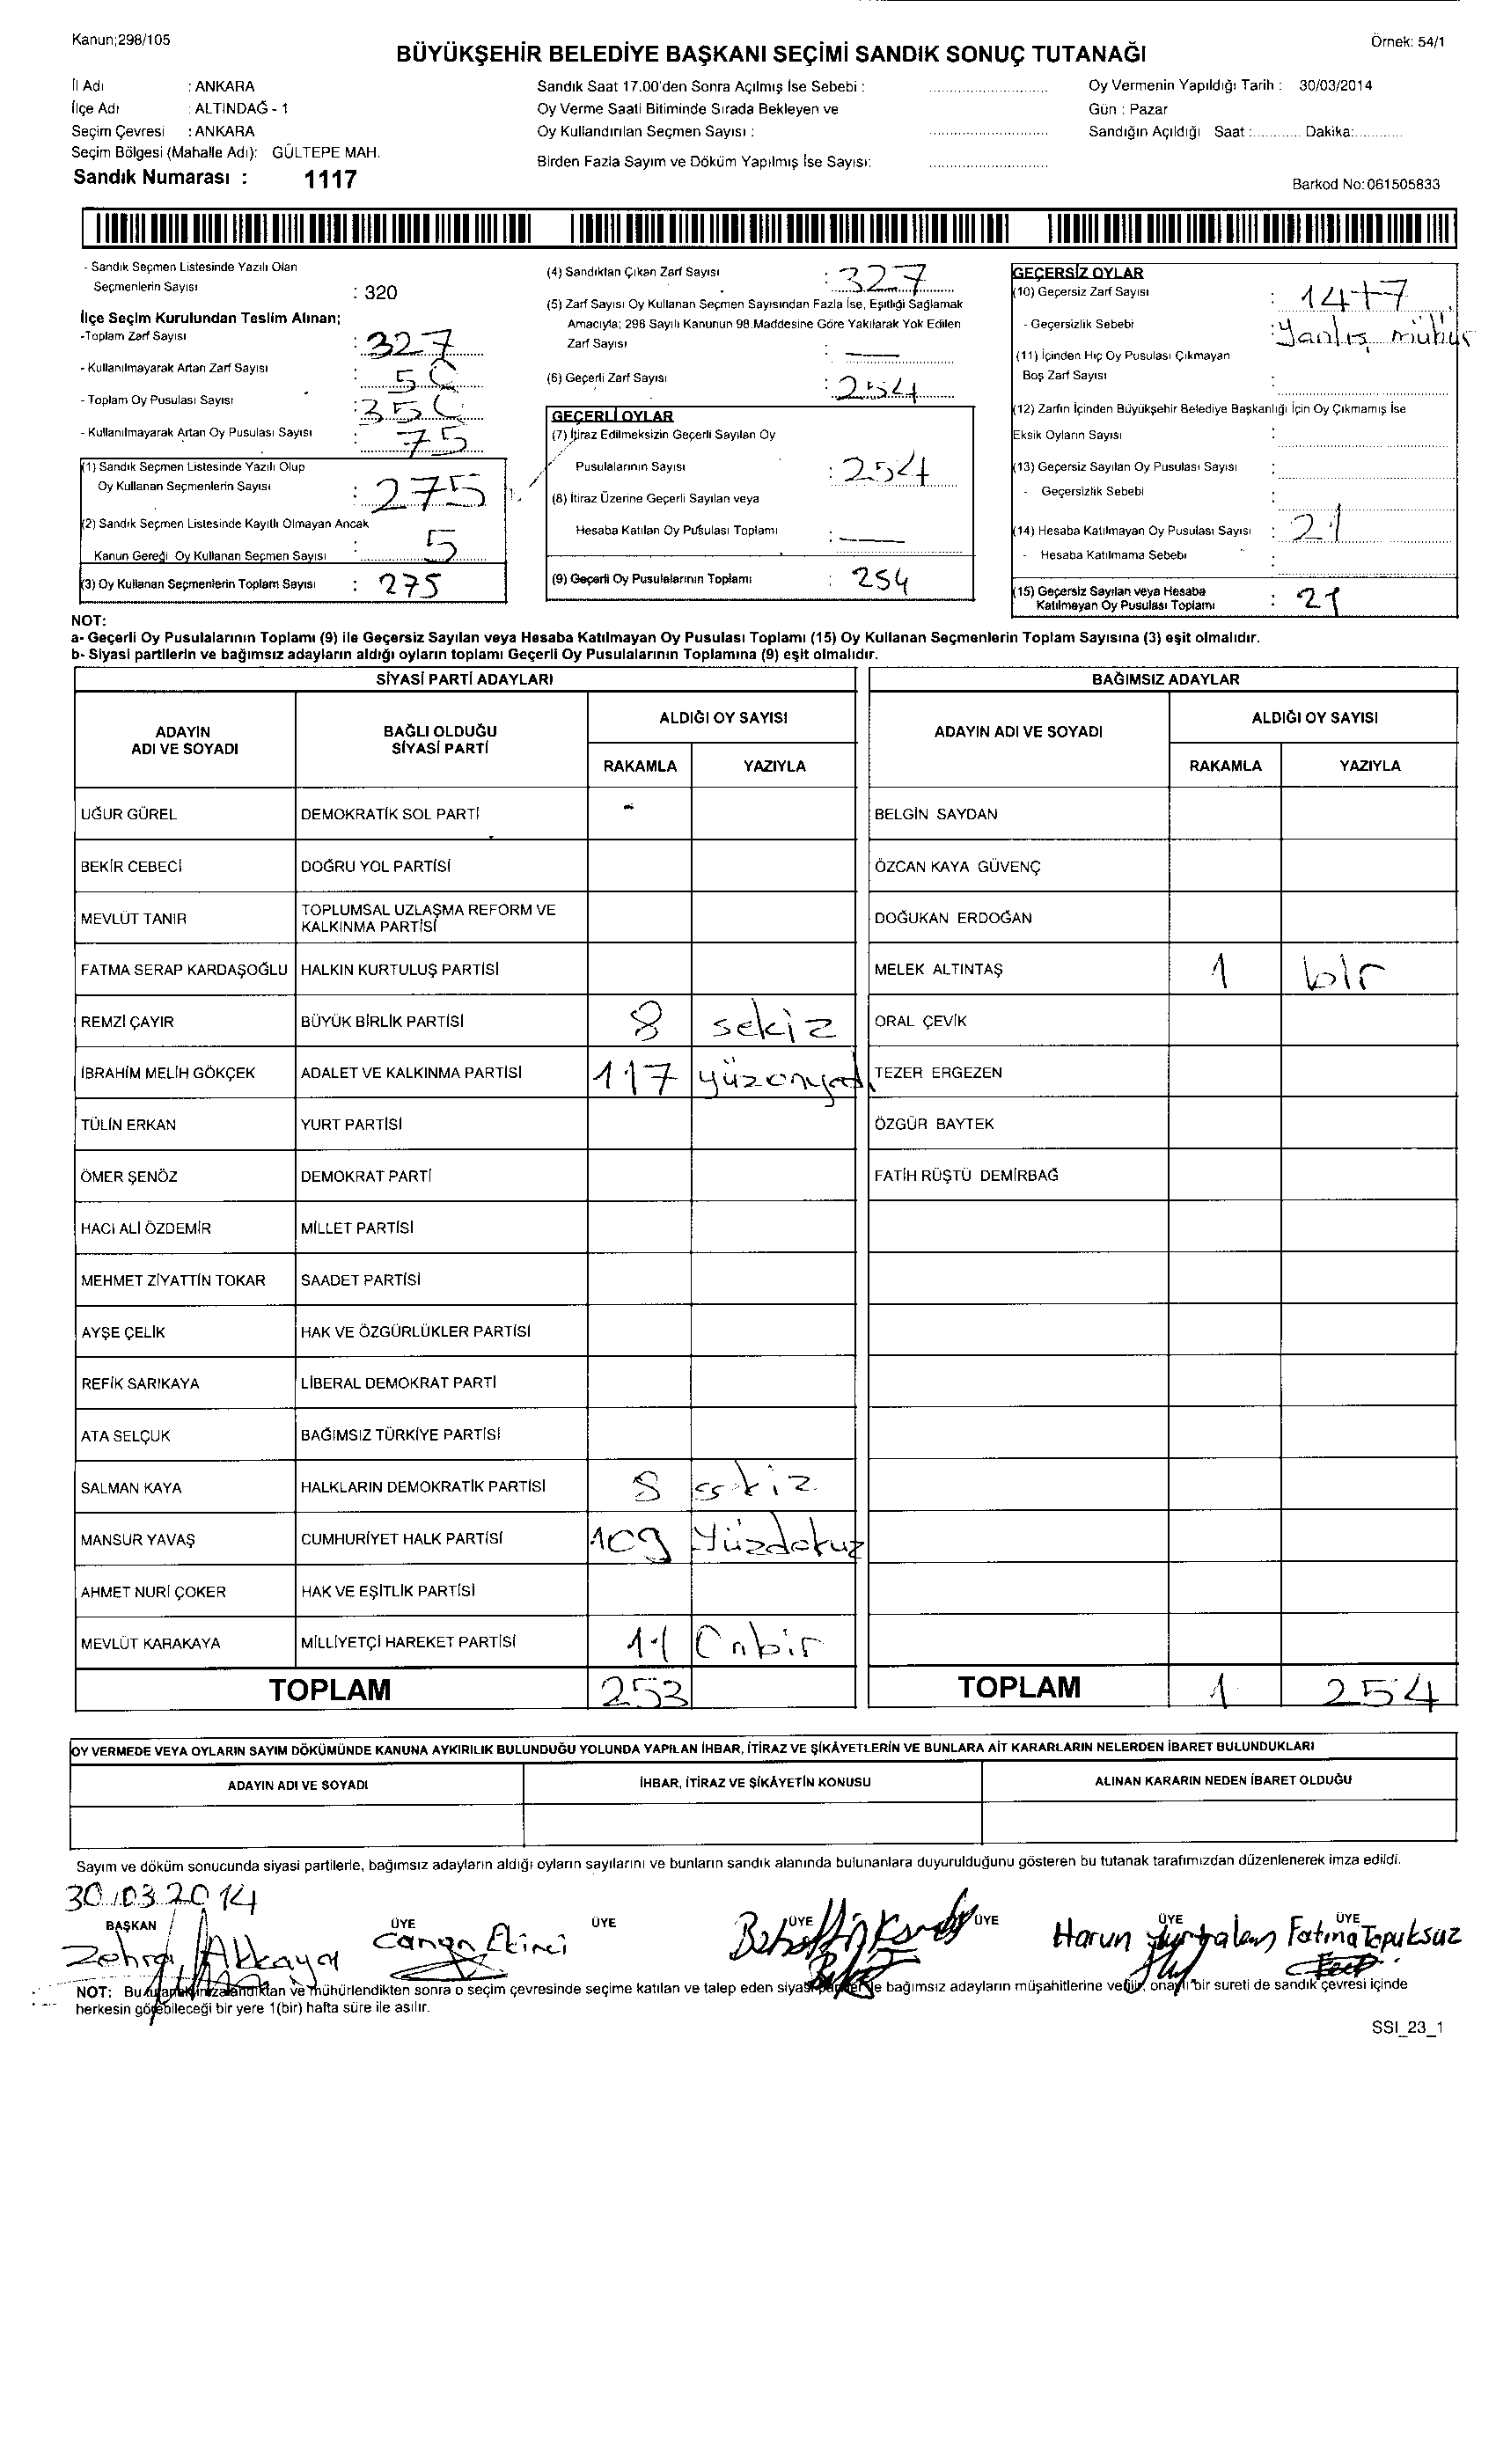 Kanun;298/105
Örnek: 54/1
BÜYÜKŞEHİR BELEDİYE BAŞKANI SEÇİMİ SANDIK SONUÇ TUTANAĞI
İl Adı : ANKARA
İlçe Adı : ALTINDAĞ - 1
Seçim Çevresi : ANKARA
Seçim Bölgesi (Mahalle Adı): GÜLTEPE MAH.
Sandık Numarası : 1117
Sandık Saat 17.00'den Sonra Açılmış İse Sebebi :
Oy Verme Saati Bitiminde Sırada Bekleyen ve
Oy Kullandırılan Seçmen Sayısı :
Birden Fazla Sayım ve Döküm Yapılmış İse Sayısı:
Oy Vermenin Yapıldığı Tarih : 30/03/2014
Gün : Pazar
Sandığın Açıldığı Saat :............ Dakika:............
Barkod No:061505833
- Sandık Seçmen Listesinde Yazılı Olan
Seçmenlerin Sayısı : 320
İlçe Seçim Kurulundan Teslim Alınan;
-Toplam Zarf Sayısı : 327
- Kullanılmayarak Artan Zarf Sayısı : 50
- Toplam Oy Pusulası Sayısı : 350
- Kullanılmayarak Artan Oy Pusulası Sayısı : 75
(1) Sandık Seçmen Listesinde Yazılı Olup
Oy Kullanan Seçmenlerin Sayısı : 275
(2) Sandık Seçmen Listesinde Kayıtlı Olmayan Ancak
Kanun Gereği Oy Kullanan Seçmen Sayısı : 5
(3) Oy Kullanan Seçmenlerin Toplam Sayısı : 275
(4) Sandıktan Çıkan Zarf Sayısı : 327
(5) Zarf Sayısı Oy Kullanan Seçmen Sayısından Fazla İse, Eşitliği Sağlamak
Amacıyla; 298 Sayılı Kanunun 98.Maddesine Göre Yakılarak Yok Edilen
Zarf Sayısı : —
(6) Geçerli Zarf Sayısı : 254
GEÇERLİ OYLAR
(7) İtiraz Edilmeksizin Geçerli Sayılan Oy
Pusulalarının Sayısı : 254
(8) İtiraz Üzerine Geçerli Sayılan veya
Hesaba Katılan Oy Pusulası Toplamı : —
(9) Geçerli Oy Pusulalarının Toplamı : 254
GEÇERSİZ OYLAR
(10) Geçersiz Zarf Sayısı : 14+7
- Geçersizlik Sebebi : Yanlış mühür
(11) İçinden Hiç Oy Pusulası Çıkmayan
Boş Zarf Sayısı :
(12) Zarfın İçinden Büyükşehir Belediye Başkanlığı İçin Oy Çıkmamış İse
Eksik Oyların Sayısı :
(13) Geçersiz Sayılan Oy Pusulası Sayısı :
- Geçersizlik Sebebi :
(14) Hesaba Katılmayan Oy Pusulası Sayısı : 21
- Hesaba Katılmama Sebebi :
(15) Geçersiz Sayılan veya Hesaba
Katılmayan Oy Pusulası Toplamı : 21
NOT:
a- Geçerli Oy Pusulalarının Toplamı (9) ile Geçersiz Sayılan veya Hesaba Katılmayan Oy Pusulası Toplamı (15) Oy Kullanan Seçmenlerin Toplam Sayısına (3) eşit olmalıdır.
b- Siyasi partilerin ve bağımsız adayların aldığı oyların toplamı Geçerli Oy Pusulalarının Toplamına (9) eşit olmalıdır.
SİYASİ PARTİ ADAYLARI
ADAYIN ADI VE SOYADI BAĞLI OLDUĞU SİYASİ PARTİ ALDIĞI OY SAYISI
RAKAMLA YAZIYLA
UĞUR GÜREL DEMOKRATİK SOL PARTİ -
BEKİR CEBECİ DOĞRU YOL PARTİSİ
MEVLÜT TANIR TOPLUMSAL UZLAŞMA REFORM VE KALKINMA PARTİSİ
FATMA SERAP KARDAŞOĞLU HALKIN KURTULUŞ PARTİSİ
REMZİ ÇAYIR BÜYÜK BİRLİK PARTİSİ 8 sekiz
İBRAHİM MELİH GÖKÇEK ADALET VE KALKINMA PARTİSİ 117 yüzonyedi
TÜLİN ERKAN YURT PARTİSİ
ÖMER ŞENÖZ DEMOKRAT PARTİ
HACI ALİ ÖZDEMİR MİLLET PARTİSİ
MEHMET ZİYATTİN TOKAR SAADET PARTİSİ
AYŞE ÇELİK HAK VE ÖZGÜRLÜKLER PARTİSİ
REFİK SARIKAYA LİBERAL DEMOKRAT PARTİ
ATA SELÇUK BAĞIMSIZ TÜRKİYE PARTİSİ
SALMAN KAYA HALKLARIN DEMOKRATİK PARTİSİ 8 sekiz
MANSUR YAVAŞ CUMHURİYET HALK PARTİSİ 109 Yüzdokuz
AHMET NURİ ÇOKER HAK VE EŞİTLİK PARTİSİ
MEVLÜT KARAKAYA MİLLİYETÇİ HAREKET PARTİSİ 11 Onbir
TOPLAM 253
BAĞIMSIZ ADAYLAR
ADAYIN ADI VE SOYADI ALDIĞI OY SAYISI
RAKAMLA YAZIYLA
BELGİN SAYDAN
ÖZCAN KAYA GÜVENÇ
DOĞUKAN ERDOĞAN
MELEK ALTINTAŞ 1 bir
ORAL ÇEVİK
TEZER ERGEZEN
ÖZGÜR BAYTEK
FATİH RÜŞTÜ DEMİRBAĞ
TOPLAM 1 254
OY VERMEDE VEYA OYLARIN SAYIM DÖKÜMÜNDE KANUNA AYKIRILIK BULUNDUĞU YOLUNDA YAPILAN İHBAR, İTİRAZ VE ŞİKÂYETLERİN VE BUNLARA AİT KARARLARIN NELERDEN İBARET BULUNDUKLARI
ADAYIN ADI VE SOYADI İHBAR, İTİRAZ VE ŞİKÂYETİN KONUSU ALINAN KARARIN NEDEN İBARET OLDUĞU
Sayım ve döküm sonucunda siyasi partilerle, bağımsız adayların aldığı oyların sayılarını ve bunların sandık alanında bulunanlara duyurulduğunu gösteren bu tutanak tarafımızdan düzenlenerek imza edildi.
30.03.2014
BAŞKAN ÜYE ÜYE ÜYE ÜYE ÜYE ÜYE
Zehra Akkaya Canan Ekinci Harun Fatma Topuksuz
NOT: Bu tutanak imzalandıktan ve mühürlendikten sonra o seçim çevresinde seçime katılan ve talep eden siyasi partiler ile bağımsız adayların müşahitlerine verilir, onaylı bir sureti de sandık çevresi içinde
herkesin görebileceği bir yere 1(bir) hafta süre ile asılır.
SSI_23_1